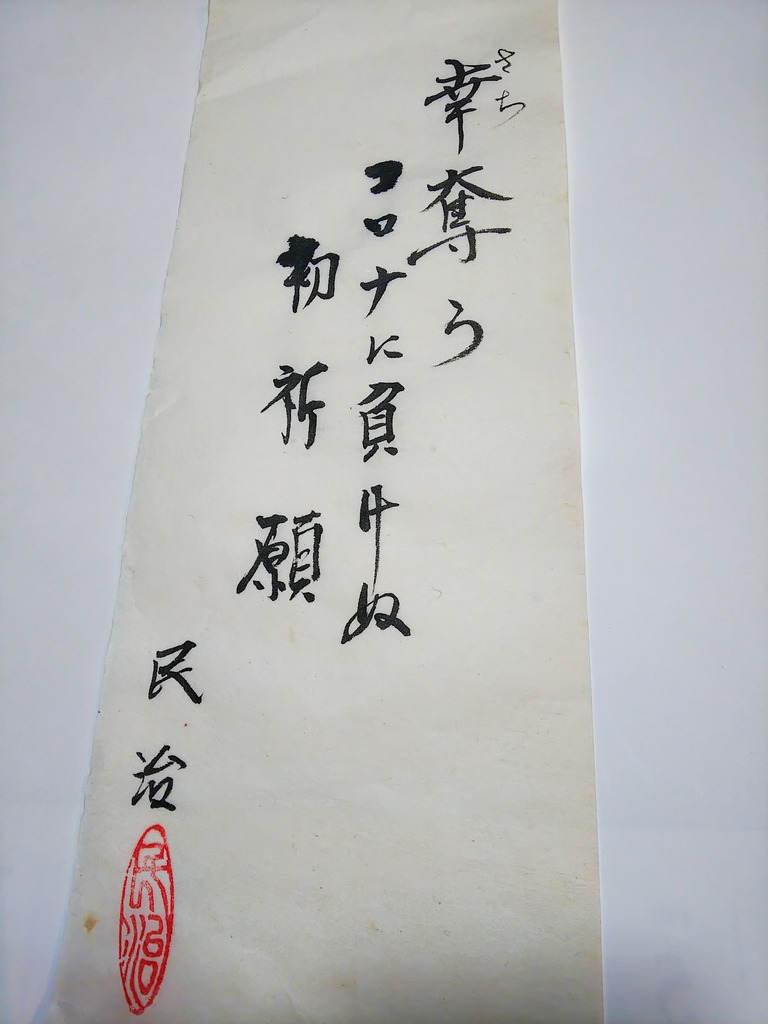 幸奪う
さち
コロナに負けぬ
初祈願
民治
民治